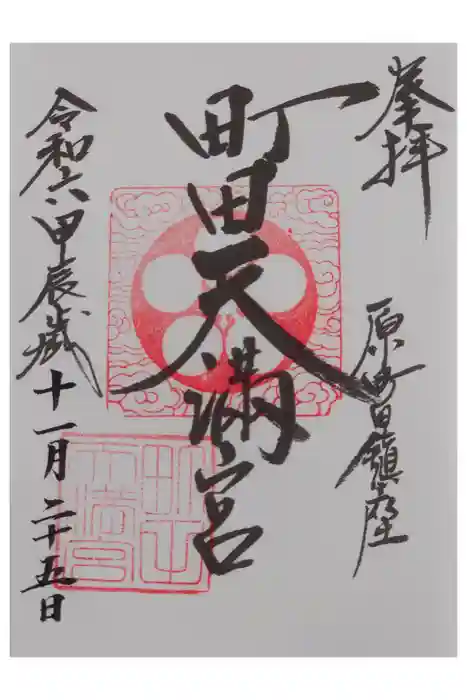 奉拝
原町田鎮座
町田天満宮
令和六甲辰歳十一月二十五日
町田天満宮